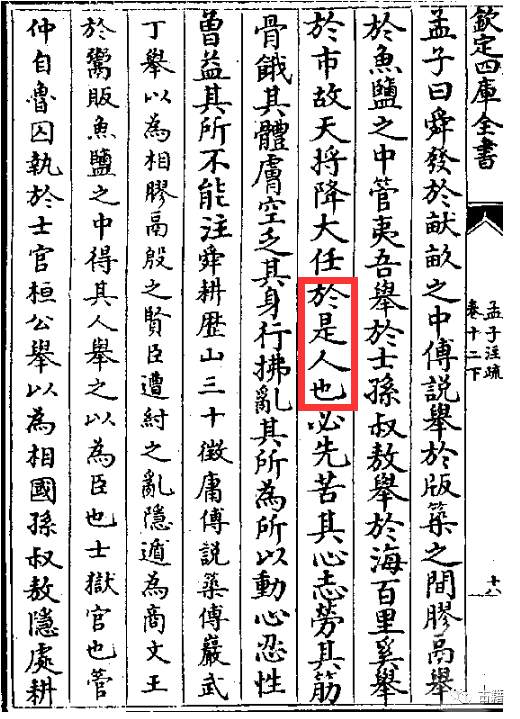 欽定四庫全書
孟子注疏
卷十二下
十六
孟子曰舜發於畎畝之中傅説舉於版築之間膠鬲舉
於魚鹽之中管夷吾舉於士孫叔敖舉於海百里奚舉
於市故天將降大任於是人也必先苦其心志勞其筋
骨餓其體膚空乏其身行拂亂其所為所以動心忍性
曾益其所不能注舜耕歷山三十徵庸傅説築傅巖武
丁舉以為相膠鬲殷之賢臣遭紂之亂隱遁為商文王
於鬻販魚鹽之中得其人舉之以為臣也士獄官也管
仲自魯囚執於士官桓公舉以為相國孫叔敖隱處耕
古籍